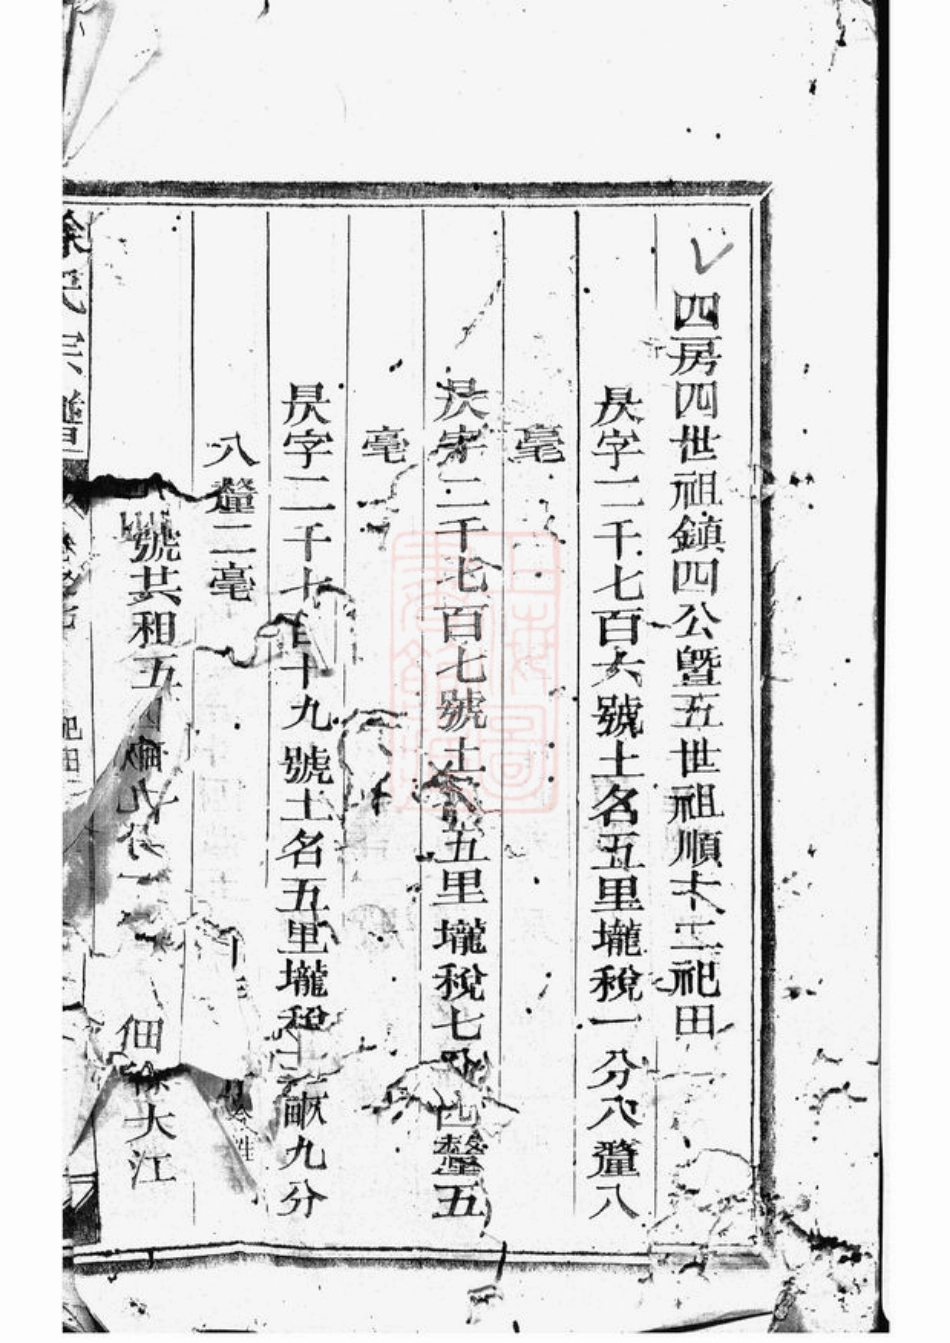 四房四世祖鎮四公暨五世祖順十二祀田
字二千七百六號土名五里壠稅一分八釐八
毫
字二千七百七號土名五里壠稅七分四釐五
毫
字二千七百十九號土名五里壠稅畝九分
八釐二毫
號共租五
佃徐大江
徐氏宗譜
祀田